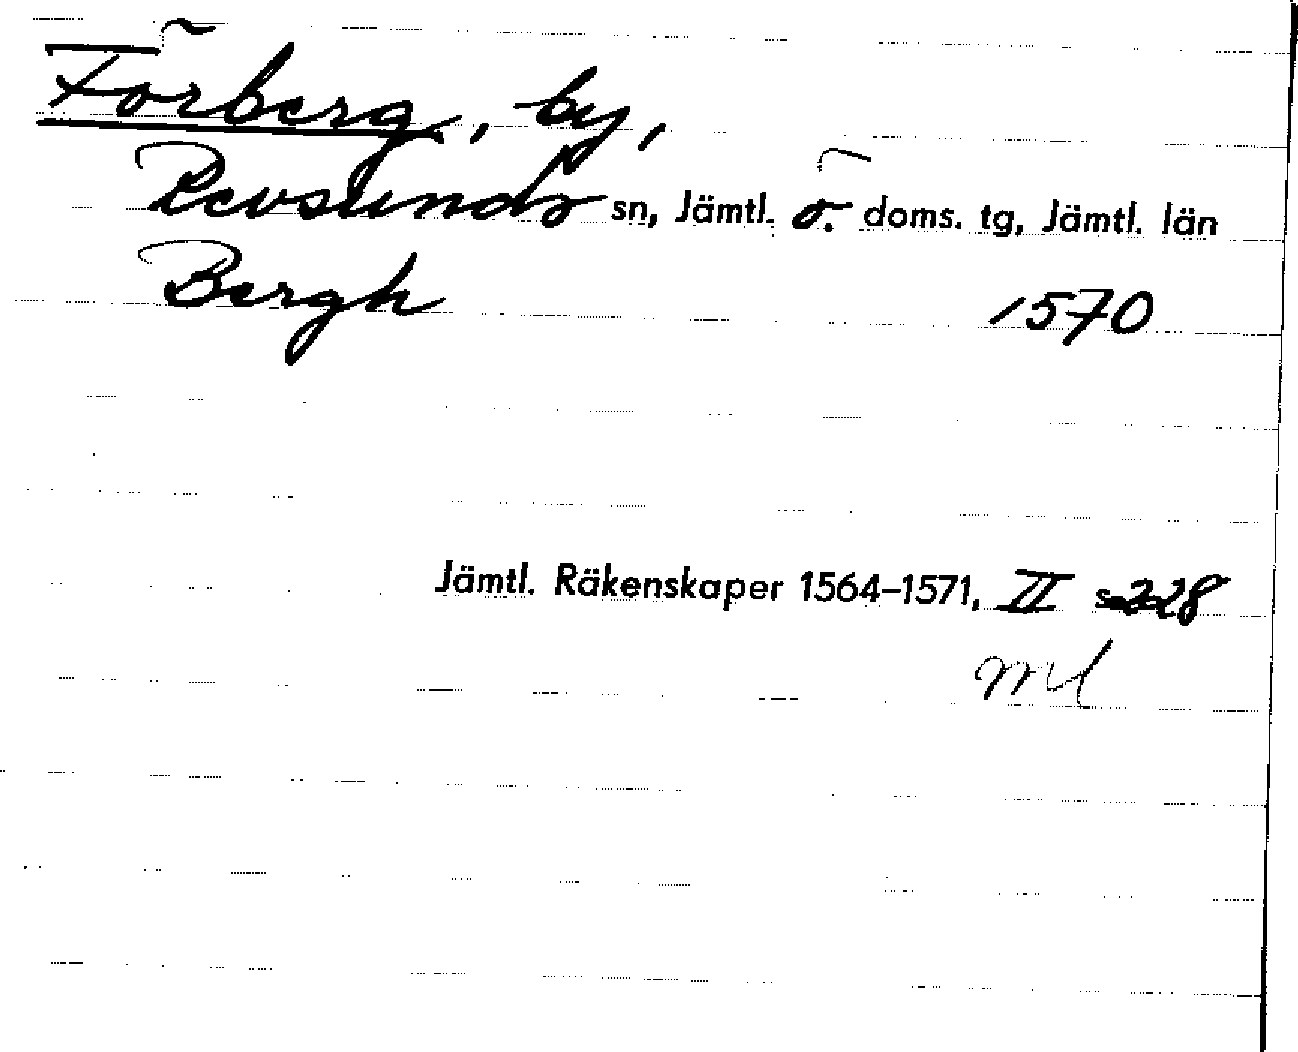 Förberg, by,
Revsunds sn, Jämtl. ö. doms. tg, Jämtl. län
Bergh 1570
Jämtl. Räkenskaper 1564–1571, II s. 228